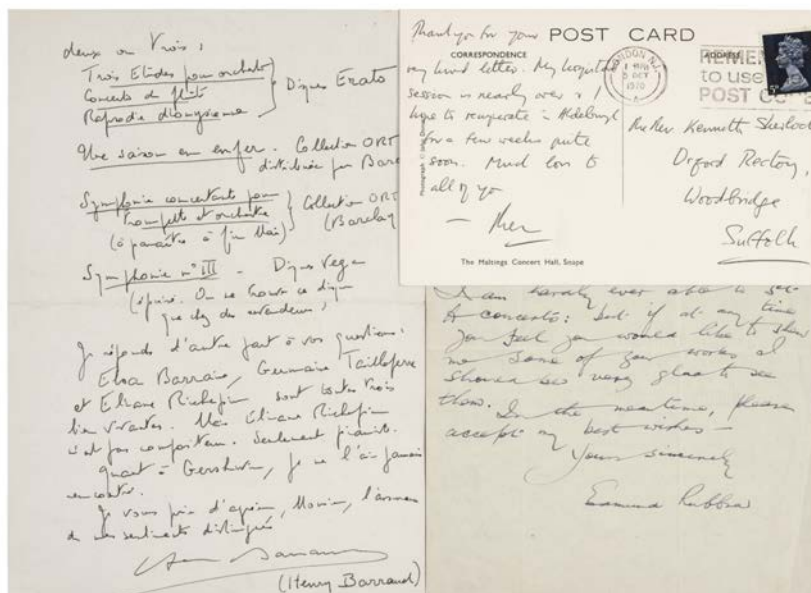 deux ou trois :
Trois Etudes pour orchestre
Concerto de flûte
Rapsodie dionysienne
Disques Erato
Une saison en enfer. Collection ORT
distribuée par Barc
Symphonie concertante pour
trompette et orchestre
(à paraître à fin Mai)
Collection ORT
(Barclay
Symphonie n° III - Disques Vega
(épuisé. On ne trouve ce disque
que chez des revendeurs)
Je réponds d'autre part à vos questions:
Elsa Barraine, Germaine Tailleferre
et Eliane Richepin sont toutes trois
bien vivantes. Mais Eliane Richepin
n'est pas compositeur. Seulement pianiste.
Quant à Gershwin, je ne l'ai jamais
rencontré.
Je vous prie d'agréer, Monsieur, l'assurance
de mes sentiments distingués
(Henry Barraud)
POST CARD
CORRESPONDENCE
ADDRESS
Thank you for your
very kind letter. My hospital
session is nearly over & I
hope to recuperate in Aldeburgh
for a few weeks quite
soon. Much love to
all of you
LONDON N.1
5 OCT
1970
REMEM
to use
POST CO
5D
The Rev Kenneth Sherlock
Orford Rectory,
Woodbridge
Suffolk
Photograph ©
The Maltings Concert Hall, Snape
I am hardly ever able to get
to concerts: but if at any time
you feel you would like to show
me some of your works I
should be very glad to see
them. In the meantime, please
accept my best wishes —
Yours sincerely
Edmund Rubbra